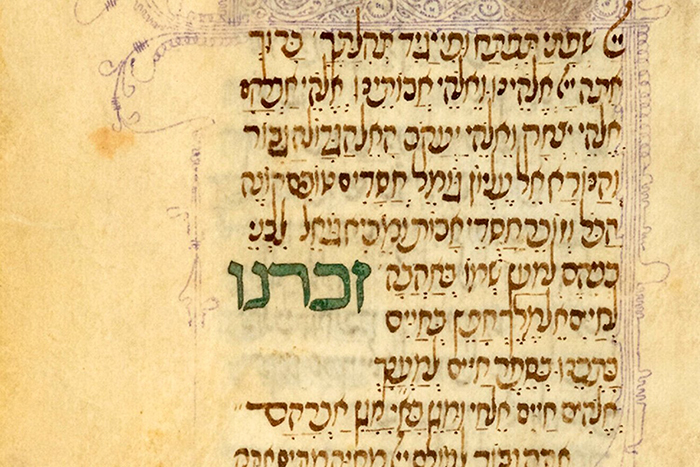 יי שפתי תפתח ופי יגיד תהלתך ברוך
אתה יי אלהינו ואלהי אבותינו אלהי אברהם
אלהי יצחק ואלהי יעקב האל הגדול הגבור
והנורא אל עליון גומל חסדים טובים קונה
הכל וזוכר חסדי אבות ומביא גואל לבני
בניהם למען שמו באהבה זכרנו
לחיים אל מלך חפץ בחיים
כתבנו בספר חיים למענך
אלהים חיים אל חי ומגן בא״י מגן אברהם
אתה גבור לעולם יי מחיה מתים אתה